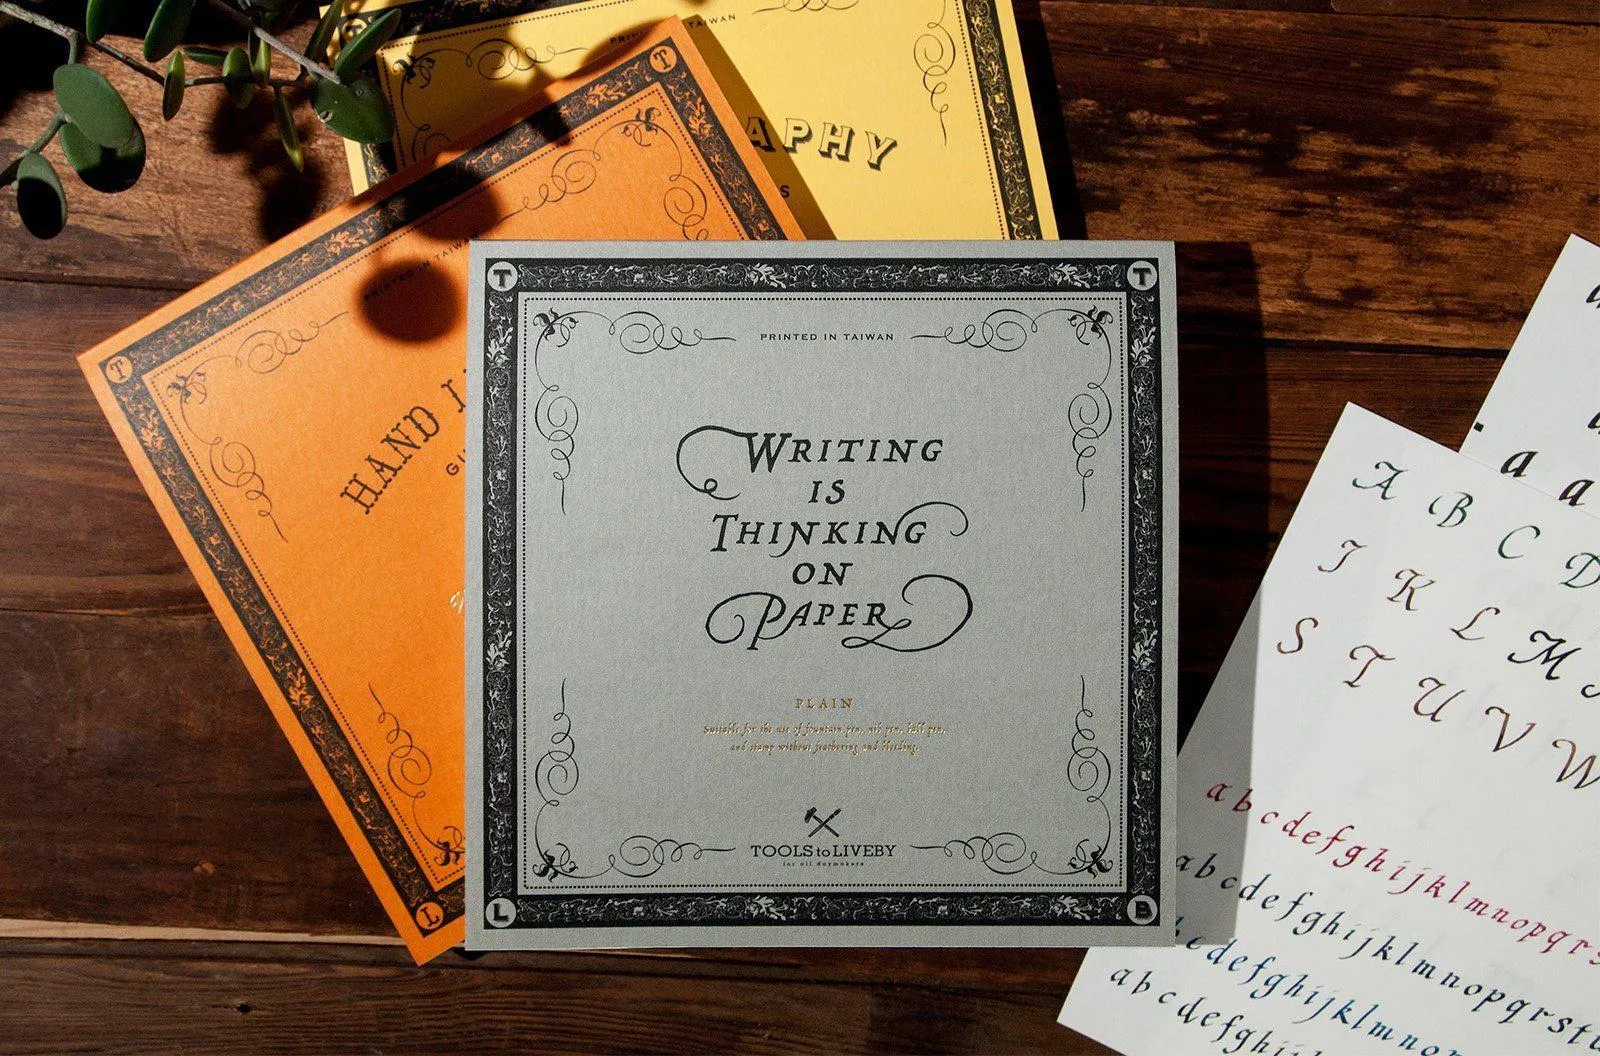 PRINTED IN TAIWAN
APHY
S
T
PRINTED IN TAIWAN
T
HAND
GU
L
T
T
PRINTED IN TAIWAN
WRITING
IS
THINKING
ON
PAPER
PLAIN
Suitable for the use of fountain pen, nib pen, ball pen,
and stamp without feathering and bleeding.
TOOLS to LIVEBY
for all daymakers
L
B
a
a a
A B C D
J K L M
S T U V W
a b c d e f g h i j k l m n o p q r s
a b c d e f g h i j k l m n o p q r s t u
c d e f g h i j k l m n o
a b c d e f g h i j k l